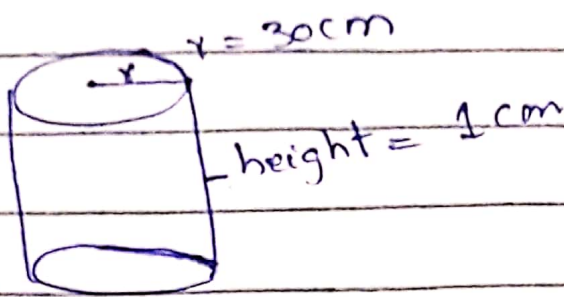 r = 30cm
r
height = 1 cm